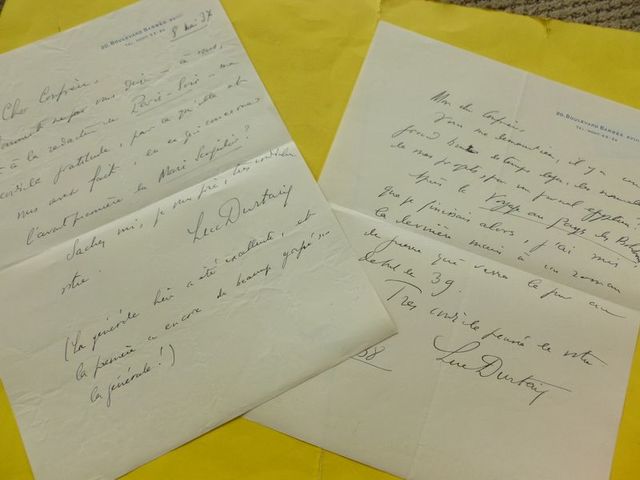 20, BOULEVARD BARBÈS, XVIII
8 mai 37
Cher Confrère,
vous dire – à vous,
à la rédaction de Paris-Soir – ma
cordiale gratitude, pour ce qu'elle et
vous avez fait, en ce qui concerne
l'avant-première du Mari singulier ?
Sachez moi, je vous prie, très cordialement
vôtre.
Luc Durtain
(La générale hier a été excellente, et
la première a encore de beaucoup gagné sur
la générale !)
20, BOULEVARD BARBÈS, XVIII
Mon cher Confrère,
Vous me demandiez, il y a un
temps, des nouvelles
de mes projets, par un journal
Après le Voyage au Pays des
que je finissais alors, j'ai mis
la dernière main à un roman
de guerre qui verra le jour au
début de 39.
Très cordiale pensée de votre
Luc Durtain
38